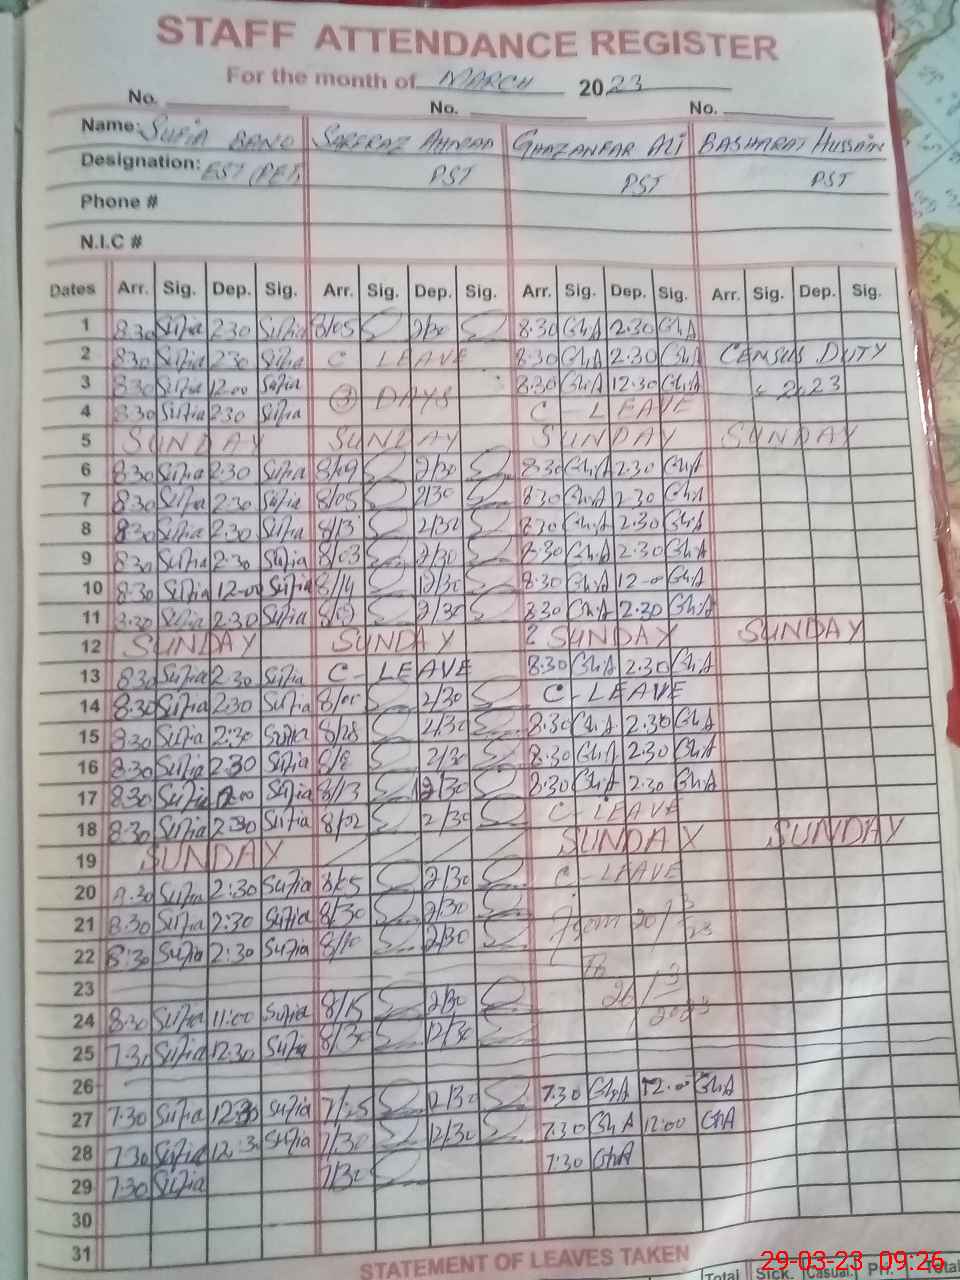 STAFF ATTENDANCE REGISTER
For the month of MARCH 2023
No. No. No.
Name: SUFIA BANO SARFRAZ AHMAD GHAZANFAR ALI BASHARAT HUSSAIN
Designation: EST (PET) PST PST PST
Phone #
N.I.C #
Dates Arr. Sig. Dep. Sig. Arr. Sig. Dep. Sig. Arr. Sig. Dep. Sig. Arr. Sig. Dep. Sig.
1 8.30 Sufia 2.30 Sufia 8/05 2/30 8.30 Gh.A 2.30 Gh.A
2 8.30 Sufia 2.30 Sufia C LEAVE 8.30 Gh.A 2.30 Gh.A CENSUS DUTY
3 8.30 Sufia 12.00 Sufia 3 DAYS 8.30 Gh.A 12.30 Gh.A 2023
4 8.30 Sufia 2.30 Sufia C - LEAVE
5 SUNDAY SUNDAY SUNDAY SUNDAY
6 8.30 Sufia 2.30 Sufia 8/09 2/30 8.30 Gh.A 2.30 Gh.A
7 8.30 Sufia 2.30 Sufia 8/05 2/30 8.30 Gh.A 2.30 Gh.A
8 8.30 Sufia 2.30 Sufia 8/13 2/30 8.30 Gh.A 2.30 Gh.A
9 8.30 Sufia 2.30 Sufia 8/03 2/30 8.30 Gh.A 2.30 Gh.A
10 8.30 Sufia 12-00 Sufia 8/14 12/30 8.30 Gh.A 12-00 Gh.A
11 8.30 Sufia 2.30 Sufia 2/30 8.30 Gh.A 2.30 Gh.A
12 SUNDAY SUNDAY SUNDAY SUNDAY
13 8.30 Sufia 2.30 Sufia C - LEAVE 8.30 Gh.A 2.30 Gh.A
14 8.30 Sufia 2.30 Sufia 8/00 2/30 C - LEAVE
15 8.30 Sufia 2:30 Sufia 8/28 2/30 8.30 Gh.A 2.30 Gh.A
16 8.30 Sufia 2.30 Sufia 2/30 8.30 Gh.A 2.30 Gh.A
17 8.30 Sufia Sufia 8/13 12/30 8.30 Gh.A 2.30 Gh.A
18 8.30 Sufia 2.30 Sufia 8/02 2/30 C - LEAVE
19 SUNDAY SUNDAY SUNDAY
20 8.30 Sufia 2:30 Sufia 2/30 C - LEAVE
21 8.30 Sufia 2:30 Sufia 8/30 2/30 From 20/3/23
22 8:30 Sufia 2:30 Sufia 8/10 2/30 To
23 26/3/2023
24 8.30 Sufia 11:00 Sufia 8/15 2/30
25 7.30 Sufia 12.30 Sufia 8/30 12/30
26
27 7.30 Sufia 12.30 Sufia 7/25 12/30 7.30 Gh.A 12.00 Gh.A
28 7.30 Sufia 12:30 Sufia 7/30 12/30 7.30 Gh A 12:00 GhA
29 7:30 Sufia 7/30 7:30 GhA
30
31
STATEMENT OF LEAVES TAKEN
Total Sick. Casual. Pri. Total
29-03-23 09:26